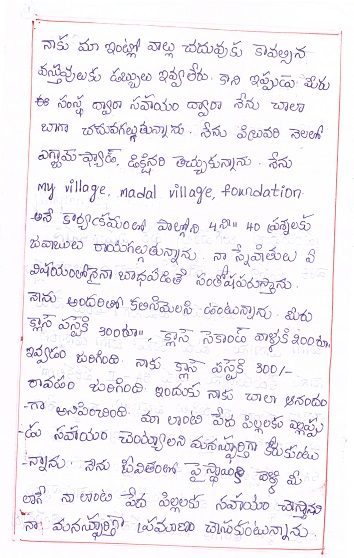 నాకు మా ఇంట్లో వాల్లు చదువుకు కావల్సిన
వస్తువులకు డబ్బులు ఇవ్వలేరు. కాని ఇప్పుడు మీరు
ఈ సంస్థ ద్వారా సహాయం ద్వారా నేను చాలా
బాగా చదువగల్గుతున్నాను. నేను చివరి నెలలో
ఎగ్జామ్ ప్యాడ్, డిక్షనరి తెచ్చుకున్నాను. నేను
my village, madal village, foundation
అనే కార్యక్రమంలో పాల్గోని 40 ప్రశ్నలకు
జవాబులు రాయగల్గుతున్నాను. నా స్నేహితులు ఏ
విషయంలోనైనా బాధపడితే సంతోషపరుస్తాను.
నాను అందరితో కలిసిమెలసి ఉంటున్నాను. మీరు
క్లాస్ ఫస్ట్‌కి 300రూ", క్లాస్ సెకాండ్ వాళ్లకి 200రూ.
ఇవ్వడం జరిగింది. నాకు క్లాస్ ఫస్ట్‌కి 300/-
రావడం జరిగింది ఇందుకు నాకు చాలా ఆనందం
-గా అనిపించింది. మా లాంటి పేద పిల్లలకు ఎల్లప్పు
-డు సహాయం చెయ్యాలని మనస్ఫూర్తిగా కోరుకుంటు
-న్నాను. నేను జీవితంలో పై స్థాయికి వెళ్లి మీ
లాగే నా లాంటి పేద పిల్లలకు సహాయం చేస్తానని
నా మనస్ఫూర్తిగా ప్రమాణం చేసుకుంటున్నాను.